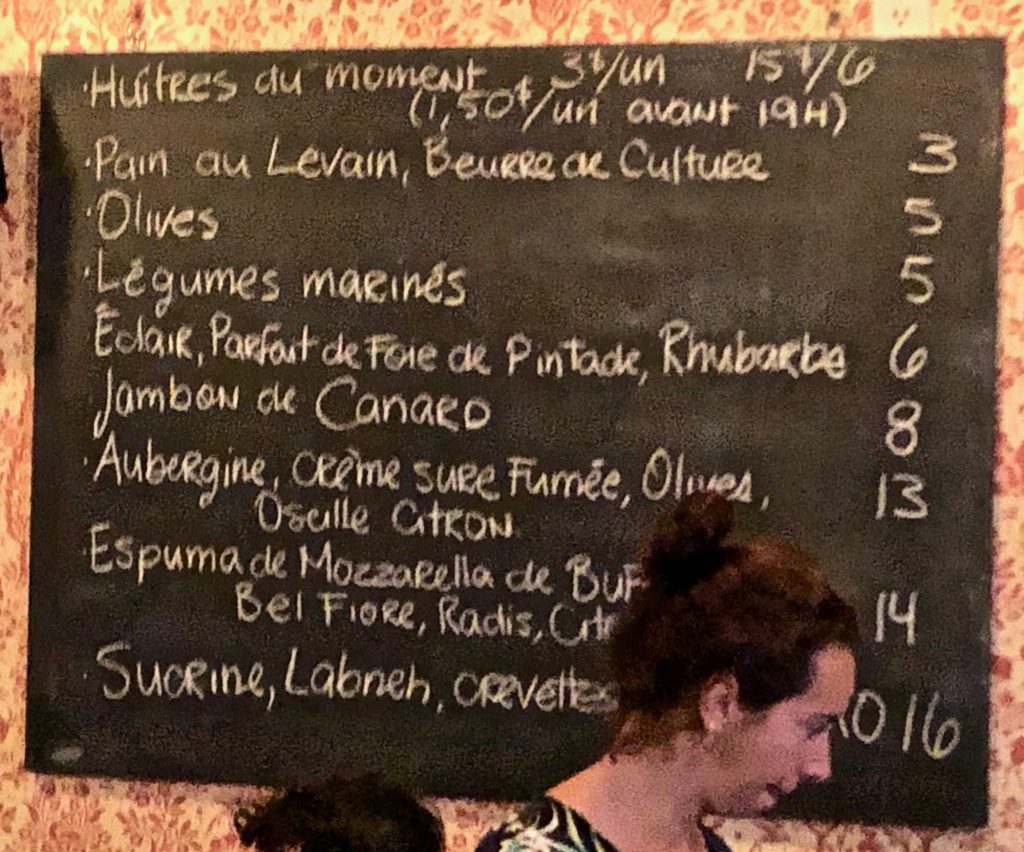 ·Huîtres du moment 3$/un 15$/6
(1,50$/un avant 19H)
·Pain au Levain, Beurre de Culture 3
·Olives 5
·Légumes marinés 5
Éclair, Parfait de Foie de Pintade, Rhubarbe 6
Jambon de Canard 8
·Aubergine, crème sure Fumée, Olives, 13
Oseille Citron
·Espuma de Mozzarella de
Bel Fiore, Radis, 14
·Sucrine, Labneh, crevettes 16